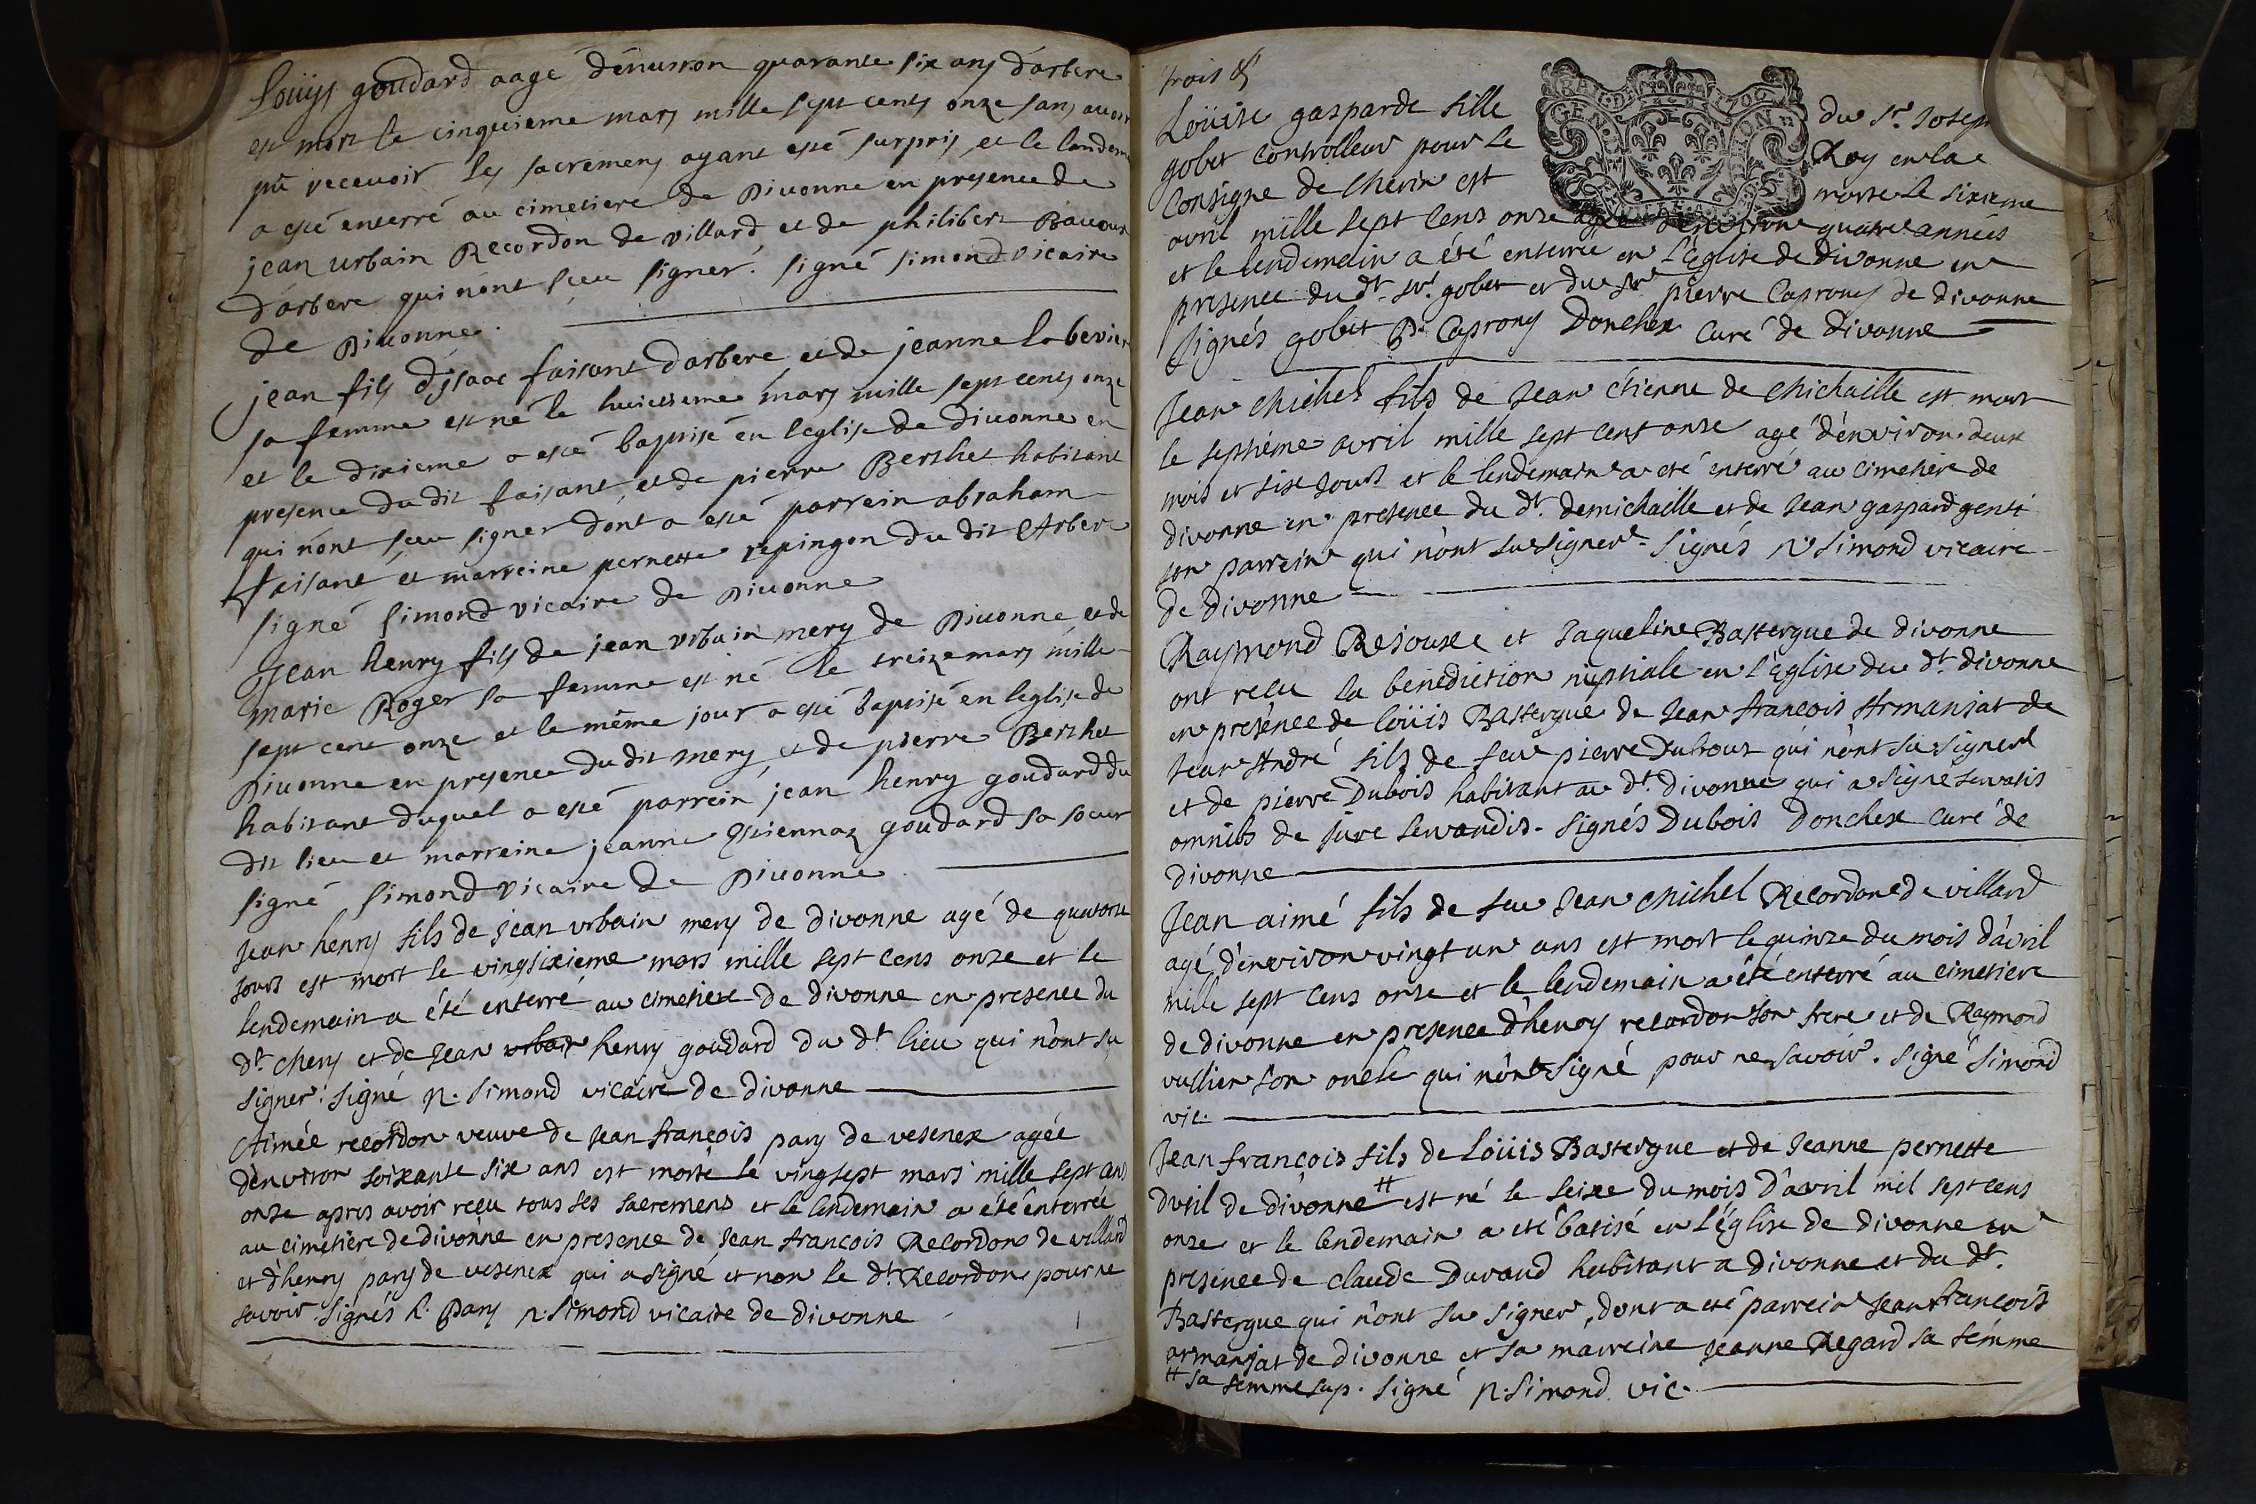 Loüys goudard aagé dénuiron quarante six ans d'arbere
est mort le cinquieme mars mille sept cents onze sans auoir
pû receuoir les sacremens ayant esté surpris, et le landem
a esté enterré au cimetiere de Diuonne en presence de
jean urbain Recordon de villard et de philibert Bauoux
d'arbere qui n'ont sceu signer. signé simond vicaire
de Diuonne.
jean fils d'jsaac faisant d'arbere et de jeanne
sa femme est né le huictieme mars mille sept cents onze
et le dixieme a esté baptisé en leglise de diuonne en
presence du dit faisant, et de pierre Berthet habitant
qui n'ont sceu signer dont a esté parrein abraham
faisant et marreine pernette repingon du dit Arbere
signé simond vicaire de Diuonne
Jean henry fils de jean vrbain mery de Diuonne, et de
marie Roger sa femme est né le treize mars mille
sept cent onze et le même jour a esté baptisé en leglise de
Diuonne en presence du dit mery, et de pierre Berthet
habitant duquel a esté parrein jean henry goudard du
dit lieu et marreine jeanne Estiennaz goudard sa soeur
signé simond vicaire de Diuonne
Jean henry fils de jean vrbain mery de divonne agé de quatorze
jours est mort le vingsixieme mars mille sept cens onze et le
lendemain a été enterré au cimetiere de divonne en presence du
dt. Mery et de Jean urbain henry goudard du dt lieu qui n'ont su
signer. signé N. Simond vicaire de divonne
Aimée recordon veuve de Jean françois pary de vesenex agée
d'environ soixante six ans est morte le vingsept mars mille sept cens
onze apres avoir reçu tous ses sacremens et le lendemain a été enterrée
au cimetiere de divonne en presence de Jean francois Recordon de villard
et d'henry pary de vesenex qui a signé et non le dt. Recordon pour ne
savoir. Signés h. Pary N. Simond vicaire de divonne
trois &
Loüise gasparde fille du Sr. Josep
gobet controlleur pour le Roy en la
Consigne de Cherin est morte le sixieme
avril mille sept cens onze agée d'environ quatre années
et le lendemain a été enterrée en L'Eglise de divonne en
presence du dt. Sr. gobet et du Sr. pierre Caprony de divonne
Signés gobet P. Caprony Donchex Curé de divonne
GEN DIION
Jean Michel fils de Jean étienne de Michaille est mort
le septiéme avril mille sept cent onze agé d'environ deux
mois et six jours et le lendemain a eté enterré au cimetiere de
divonne en presence du dt. demichaille et de Jean gaspard genti
son parrein qui n'ont su signer. Signés N. Simond vicaire
de divonne
Raymond Rejouxe et Jaqueline Bastergue de divonne
ont reçu la benediction nuptiale en l'Eglise du dt. divonne
en presence de Loüis Bastergue de Jean francois Armanjat de
Jean André fils de feu pierre Dubout qui n'ont su signer
et de pierre Dubois habitant au dt. divonne qui a signé servatis
omnibs de jure servandis. Signés Dubois Donchex Curé de
divonne
Jean aimé fils de feu Jean Michel Recordon de villard
agé d'environ vingt un ans est mort le quinze du mois d'avril
mille sept cens onze et le lendemain a été enterré au cimetiere
de divonne en presence d'henry recordon son frere et de Raymond
vullien son oncle qui n'ont signé pour ne savoir. Signé Simond
vic.
Jean françois fils de Loüis Bastergue et de Jeanne pernette
Dutil de divonne # est né le seize du mois d'avril mil sept cens
onze et le lendemain a eté batisé en l'église de divonne en
presence de claude Durand habitant a divonne et du dt.
Bastergue qui n'ont su signer, dont a eté parrein Jean francois
armanjat de divonne et sa marreine Jeanne Regard sa femme
# sa femme sup. Signé N. Simond vic.